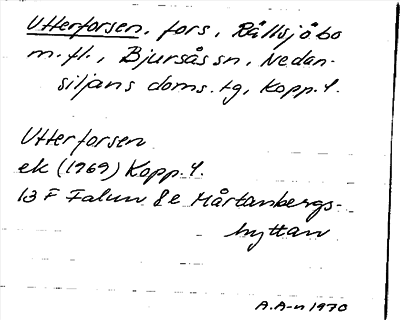 Utterforsen, fors, Rällsjöbo
m.fl., Bjursås sn, Nedan-
siljans doms.tg, Kopp.l.
Utterforsen
ek (1969) Kopp.l.
13 F Falun 8e Mårtanbergs-
hyttan
A.A-n 1970